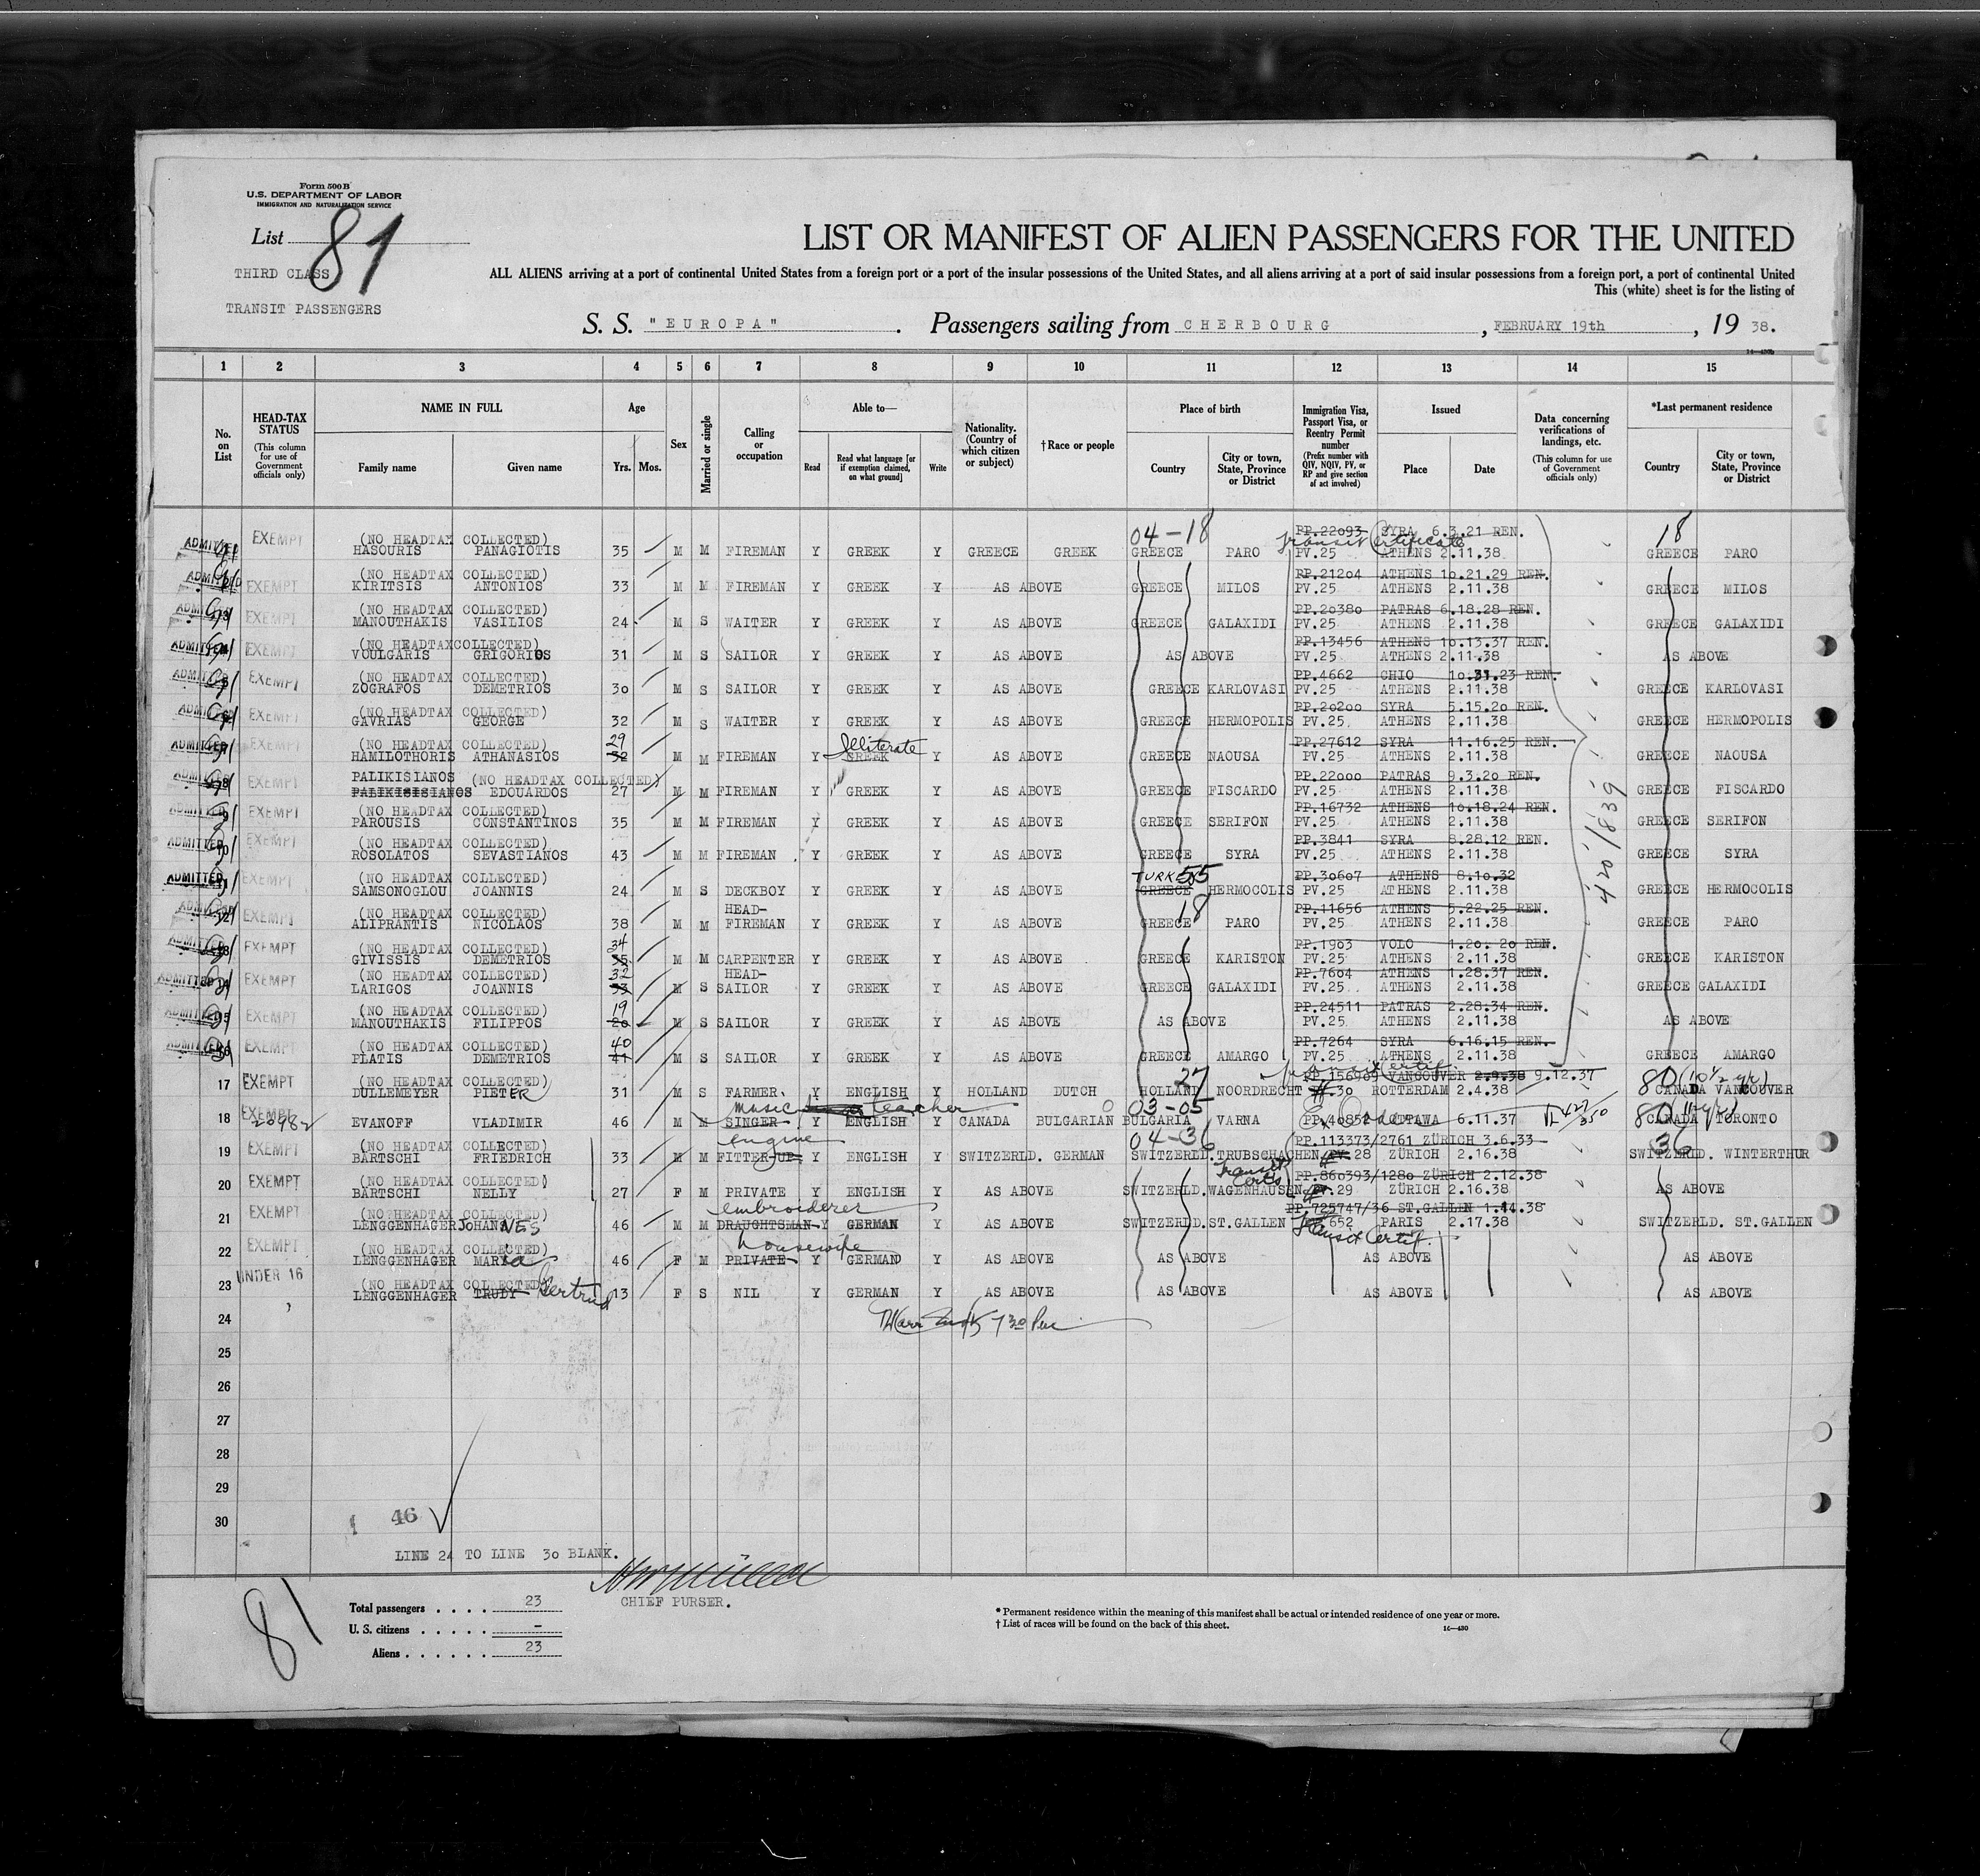 Form 500B
U.S. DEPARTMENT OF LABOR
IMMIGRATION AND NATURALIZATION SERVICE
List 81
THIRD CLASS
TRANSIT PASSENGERS
LIST OR MANIFEST OF ALIEN PASSENGERS FOR THE UNITED
ALL ALIENS arriving at a port of continental United States from a foreign port or a port of the insular possessions of the United States, and all aliens arriving at a port of said insular possessions from a foreign port, a port of continental United
This (white) sheet is for the listing of
S. S. "EUROPA" . Passengers sailing from CHERBOURG , FEBRUARY 19th , 19 38.
1 2 3 4 5 6 7 8 9 10 11 12 13 14 15
No. on List
HEAD-TAX STATUS (This column for use of Government officials only)
NAME IN FULL Family name Given name
Age Yrs. Mos.
Sex
Married or single
Calling or occupation
Able to— Read Read what language [or if exemption claimed, on what ground] Write
Nationality. (Country of which citizen or subject)
†Race or people
Place of birth Country City or town, State, Province or District
Immigration Visa, Passport Visa, or Reentry Permit number (Prefix number with QIV, NQIV, PV, or RP and give section of act involved)
Issued Place Date
Data concerning verifications of landings, etc. (This column for use of Government officials only)
*Last permanent residence Country City or town, State, Province or District
EXEMPT (NO HEADTAX COLLECTED) 04-18 PP.22093 SYRA 6.3.21 REN. 18
Transit Certificate
ADMITTED HASOURIS PANAGIOTIS 35 M M FIREMAN Y GREEK Y GREECE GREEK GREECE PARO PV.25 ATHENS 2.11.38 GREECE PARO
(NO HEADTAX COLLECTED) PP.21204 ATHENS 10.21.29 REN.
ADMITTED EXEMPT KIRITSIS ANTONIOS 33 M M FIREMAN Y GREEK Y AS ABOVE GREECE MILOS PV.25 ATHENS 2.11.38 GREECE MILOS
(NO HEADTAX COLLECTED) PP.20380 PATRAS 6.18.28 REN.
ADMITTED EXEMPT MANOUTHAKIS VASILIOS 24 M S WAITER Y GREEK Y AS ABOVE GREECE GALAXIDI PV.25 ATHENS 2.11.38 GREECE GALAXIDI
(NO HEADTAXCOLLECTED) PP.13456 ATHENS 10.13.37 REN.
ADMITTED EXEMPT VOULGARIS GRIGORIOS 31 M S SAILOR Y GREEK Y AS ABOVE AS ABOVE PV.25 ATHENS 2.11.38 AS ABOVE
(NO HEADTAX COLLECTED) PP.4662 CHIO 10.31.23 REN.
ADMITTED EXEMPT ZOGRAFOS DEMETRIOS 30 M S SAILOR Y GREEK Y AS ABOVE GREECE KARLOVASI PV.25 ATHENS 2.11.38 GREECE KARLOVASI
(NO HEADTAX COLLECTED) PP.20200 SYRA 5.15.20 REN.
ADMITTED EXEMPT GAVRIAS GEORGE 32 M S WAITER Y GREEK Y AS ABOVE GREECE HERMOPOLIS PV.25 ATHENS 2.11.38 GREECE HERMOPOLIS
(NO HEADTAX COLLECTED) 29 Illiterate PP.27612 SYRA 11.16.25 REN.
ADMITTED EXEMPT HAMILOTHORIS ATHANASIOS 32 M M FIREMAN Y GREEK Y AS ABOVE GREECE NAOUSA PV.25 ATHENS 2.11.38 GREECE NAOUSA
PALIKISIANOS (NO HEADTAX COLLECTED) PP.22000 PATRAS 9.3.20 REN.
ADMITTED EXEMPT PALIKISISIANOS EDOUARDOS 27 M M FIREMAN Y GREEK Y AS ABOVE GREECE FISCARDO PV.25 ATHENS 2.11.38 GREECE FISCARDO
(NO HEADTAX COLLECTED) PP.16732 ATHENS 10.18.24 REN.
ADMITTED EXEMPT PAROUSIS CONSTANTINOS 35 M M FIREMAN Y GREEK Y AS ABOVE GREECE SERIFON PV.25 ATHENS 2.11.38 GREECE SERIFON
(NO HEADTAX COLLECTED) PP.3841 SYRA 8.28.12 REN.
ADMITTED EXEMPT ROSOLATOS SEVASTIANOS 43 M M FIREMAN Y GREEK Y AS ABOVE GREECE SYRA PV.25 ATHENS 2.11.38 GREECE SYRA
(NO HEADTAX COLLECTED) TURKEY 55 PP.30607 ATHENS 8.10.32
ADMITTED EXEMPT SAMSONOGLOU JOANNIS 24 M S DECKBOY Y GREEK Y AS ABOVE GREECE HERMOCOLIS PV.25 ATHENS 2.11.38 GREECE HERMOCOLIS
(NO HEADTAX COLLECTED) HEAD- 18 PP.11656 ATHENS 5.22.25 REN.
ADMITTED EXEMPT ALIPRANTIS NICOLAOS 38 M M FIREMAN Y GREEK Y AS ABOVE GREECE PARO PV.25 ATHENS 2.11.38 GREECE PARO
(NO HEADTAX COLLECTED) 34 PP.1903 VOLO 1.20.20 REN.
ADMITTED EXEMPT GIVISSIS DEMETRIOS 35 M M CARPENTER Y GREEK Y AS ABOVE GREECE KARISTON PV.25 ATHENS 2.11.38 GREECE KARISTON
(NO HEADTAX COLLECTED) 32 HEAD- PP.7604 ATHENS 1.28.37 REN.
ADMITTED EXEMPT LARIGOS JOANNIS 33 M S SAILOR Y GREEK Y AS ABOVE GREECE GALAXIDI PV.25 ATHENS 2.11.38 GREECE GALAXIDI
(NO HEADTAX COLLECTED) 19 PP.24511 PATRAS 2.28.34 REN.
ADMITTED EXEMPT MANOUTHAKIS FILIPPOS 20 M S SAILOR Y GREEK Y AS ABOVE AS ABOVE PV.25 ATHENS 2.11.38 AS ABOVE
(NO HEADTAX COLLECTED) 40 PP.7264 SYRA 6.16.15 REN.
ADMITTED EXEMPT PLATIS DEMETRIOS 41 M S SAILOR Y GREEK Y AS ABOVE GREECE AMARGO PV.25 ATHENS 2.11.38 GREECE AMARGO
420/1,839
(NO HEADTAX COLLECTED) 27 PP 156909 VANCOUVER 2.9.38 9.12.37 80 (10 1/2 yrs)
17 EXEMPT DULLEMEYER PIETER 31 M S FARMER Y ENGLISH Y HOLLAND DUTCH HOLLAND NOORDRECHT 30 ROTTERDAM 2.4.38 CANADA VANCOUVER
music teacher 03-05 80
18 EXEMPT EVANOFF VLADIMIR 46 M M SINGER Y ENGLISH Y CANADA BULGARIAN BULGARIA VARNA PP.40852 OTTAWA 6.11.37 CANADA TORONTO
(NO HEADTAX COLLECTED) engine 04-36 PP.113373/2761 ZÜRICH 3.6.33 36
19 EXEMPT BARTSCHI FRIEDRICH 33 M M FITTER-UP Y ENGLISH Y SWITZERLD. GERMAN SWITZERLD.TRUBSCHACHEN PV.28 ZÜRICH 2.16.38 SWITZERLD. WINTERTHUR
(NO HEADTAX COLLECTED) Transit Certs PP.860393/1280 ZÜRICH 2.12.38
20 EXEMPT BARTSCHI NELLY 27 F M PRIVATE Y ENGLISH Y AS ABOVE SWITZERLD.WAGENHAUSEN PV.29 ZÜRICH 2.16.38 AS ABOVE
(NO HEADTAX COLLECTED) embroiderer PP 725747/36 ST.GALLEN 1.11.38
21 EXEMPT LENGGENHAGER JOHANNES 46 M M DRAUGHTSMAN Y GERMAN Y AS ABOVE SWITZERLD.ST.GALLEN 652 PARIS 2.17.38 SWITZERLD. ST.GALLEN
(NO HEADTAX COLLECTED) housewife Transit Certif.
22 EXEMPT LENGGENHAGER MARIA 46 F M PRIVATE Y GERMAN Y AS ABOVE AS ABOVE AS ABOVE AS ABOVE
(NO HEADTAX COLLECTED)
23 UNDER 16 LENGGENHAGER TRUDY Gertrud 13 F S NIL Y GERMAN Y AS ABOVE AS ABOVE AS ABOVE AS ABOVE
24
25
26
27
28
29
30
46
LINE 24 TO LINE 30 BLANK.
CHIEF PURSER.
81
Total passengers . . . . 23
U. S. citizens . . . . . –
Aliens . . . . . . 23
* Permanent residence within the meaning of this manifest shall be actual or intended residence of one year or more.
† List of races will be found on the back of this sheet.
14—430